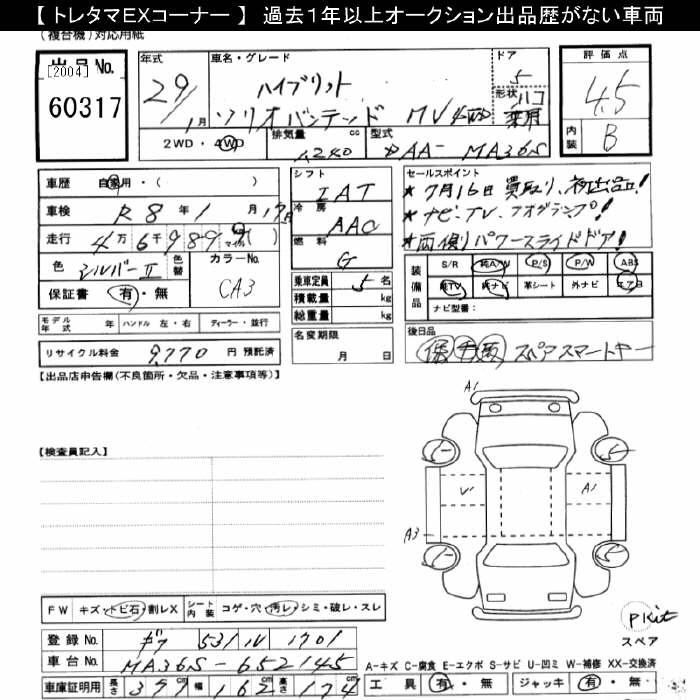 【 トレタマEXコーナー 】 過去1年以上オークション出品歴がない車両
(複合機)対応用紙
出品No.
[2004]
60317
年式 29/1月
車名・グレード ハイブリット
ソリオバンデッド MV 4WD
ドア 5
形状 ハコ 乗用
評価点 4.5
内装 B
2WD・4WD
排気量 1,240 cc
型式 DAA-MA36S
車歴 自家用・( )
車検 R8年1月17日
走行 4万6千989 マイル
色 シルバーⅡ 色替 カラーNo. CA3
保証書 有・無
シフト IAT
冷房 AAC
燃料 G
乗車定員 5名
積載量 kg
総重量 kg
セールスポイント
★7月16日 買取り、初出品!
★ナビ・TV、フォグランプ!
★両側パワースライドドア!
装備品 S/R 純A/W P/S P/W ABS
純TV 純ナビ 革シート 外ナビ エアB
ナビ型番:
モデル年式 年 ハンドル 左・右 ディーラー・並行
リサイクル料金 9,770 円 預託済
名変期限 月 日
後日品
保 手 取 スペアスマートキー
【出品店申告欄(不良箇所・欠品・注意事項等)】
【検査員記入】
A1
5 5
V' A1
A3
5 5
FW キズ・トビ石・割レX シート内装 コゲ・穴・汚レ・シミ・破レ・スレ
P Kit
スペア
登録No. ギフ 531 ル 1701
車台No. MA36S-652145
A-キズ C-腐食 E-エクボ S-サビ U-凹ミ W-補修 XX-交換済
車庫証明用 長さ 377cm 幅 162cm 高さ 174
工具 有・無 ジャッキ 有・無